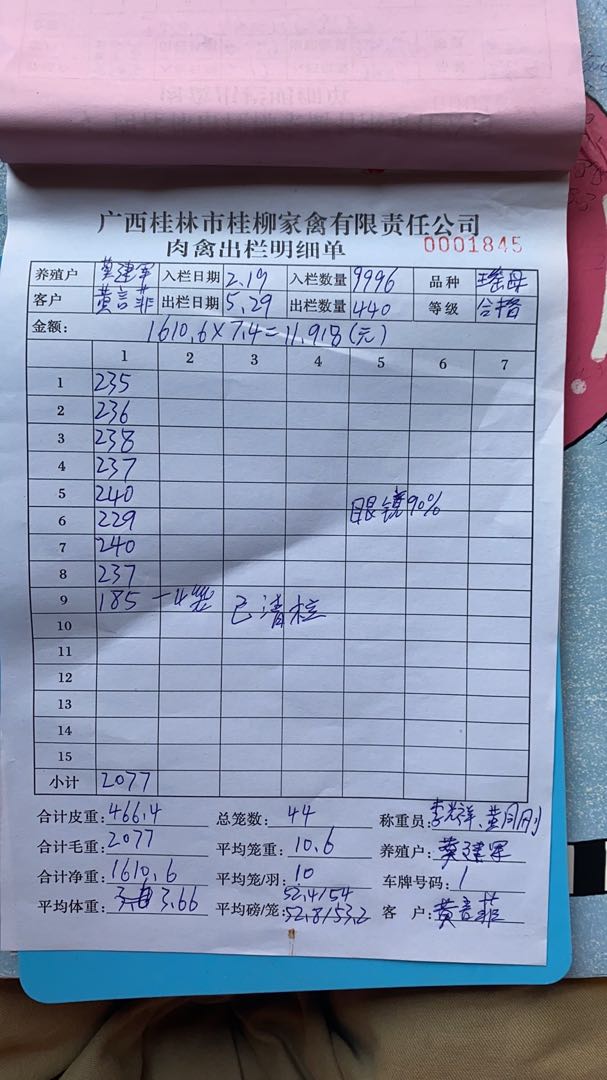 广西桂林市桂柳家禽有限责任公司
肉禽出栏明细单
0001845
养殖户 莫建军 入栏日期 2.19 入栏数量 9996 品种 瑶母
客户 黄言菲 出栏日期 5.29 出栏数量 440 等级 合格
金额: 1610.6×7.4=11.918(元)
1 2 3 4 5 6 7
1 235
2 236
3 238
4 237
5 240
眼镜90%
6 229
7 240
8 237
9 185 一4笼 已清栏
10
11
12
13
14
15
小计 2077
合计皮重: 466.4 总笼数: 44 称重员: 黄月刚
合计毛重: 2077 平均笼重: 10.6 养殖户: 莫建军
合计净重: 1610.6 平均笼/羽: 10 车牌号码: 1
52.4/54
平均体重: 3.66 平均磅/笼: 52.8/53.2 客 户: 黄言菲